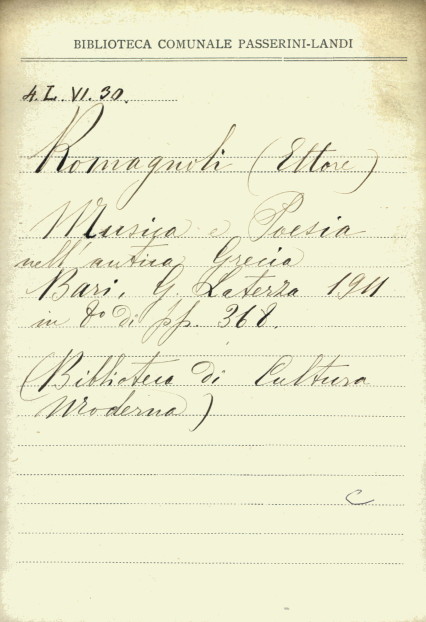 BIBLIOTECA COMUNALE PASSERINI-LANDI
4. L. VI. 30.
Romagnoli (Ettore)
Musica e Poesia
nell'antica Grecia
Bari, G. Laterza 1911
in 8° di pp. 368.
(Biblioteca di Cultura
Moderna)
C